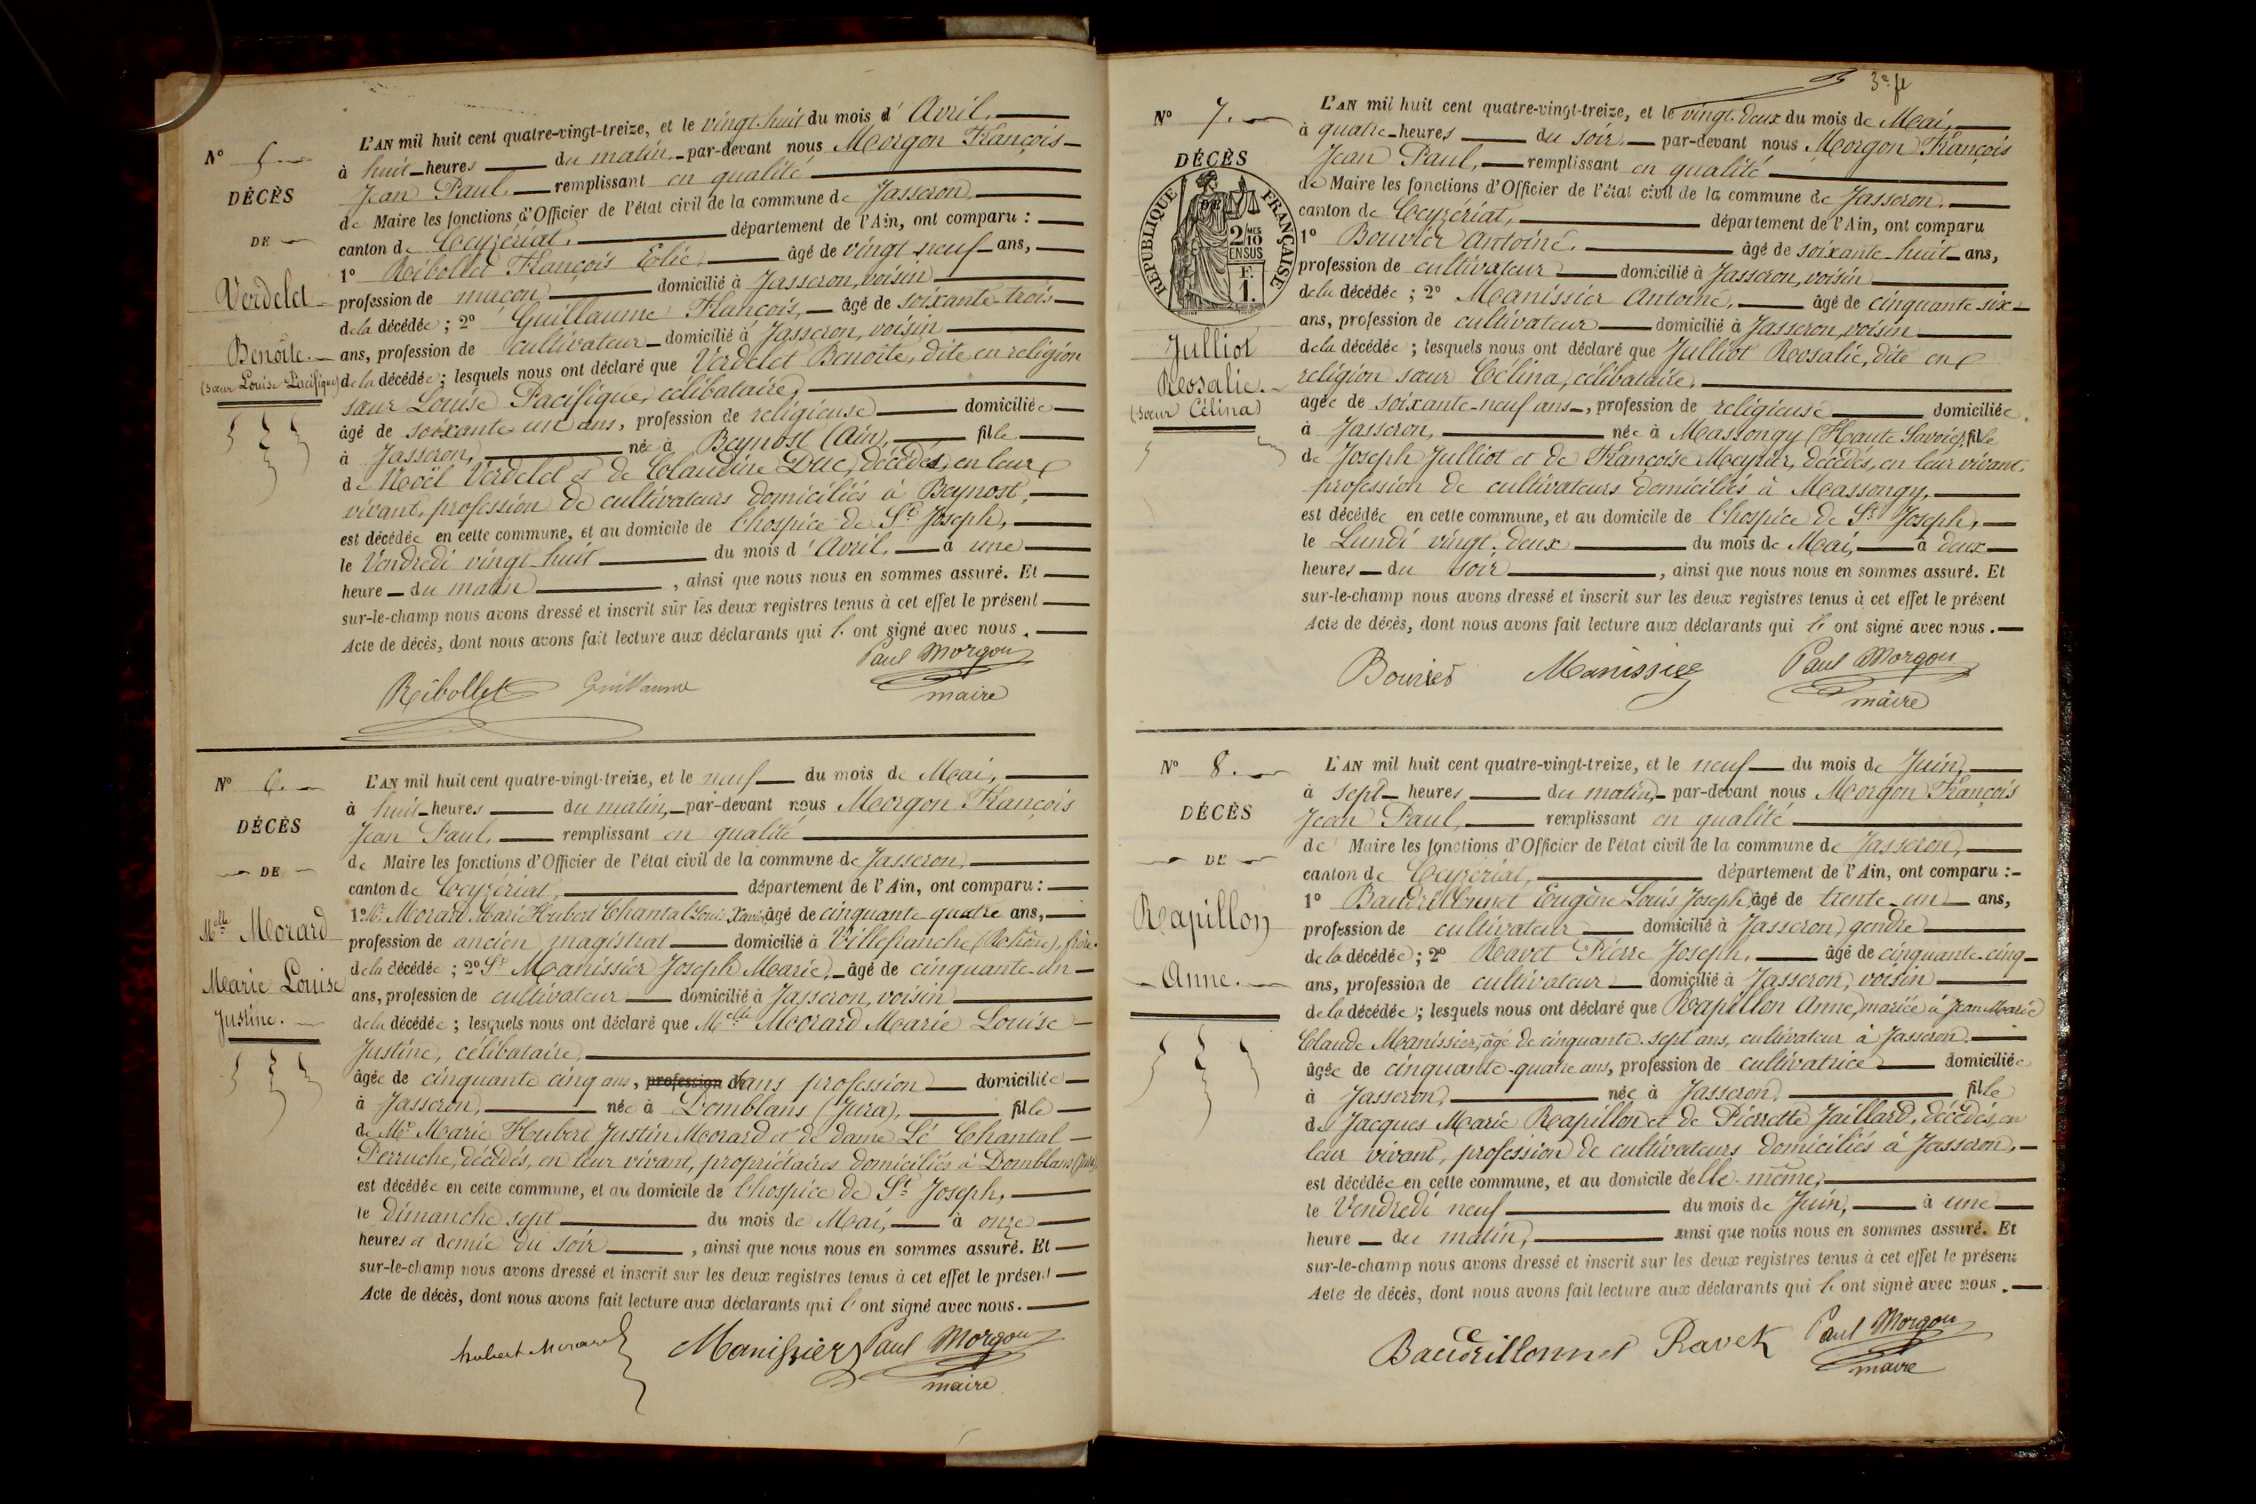 N° 5.
DÉCÈS
DE
Verdelet
Benoîte.
(Sœur Louise Pacifique)
L'AN mil huit cent quatre-vingt-treize, et le vingt-huit du mois d'Avril,
à huit heures du matin, par-devant nous Morgon François
Jean Paul, remplissant en qualité
de Maire les fonctions d'Officier de l'état civil de la commune de Jasseron,
canton de Ceyzériat, département de l'Ain, ont comparu :
1° Ribollet François Elie, âgé de vingt-neuf ans,
profession de maçon domicilié à Jasseron, voisin
de la décédée ; 2° Guillaume François, âgé de soixante-trois
ans, profession de cultivateur domicilié à Jasseron, voisin
de la décédée ; lesquels nous ont déclaré que Verdelet Benoîte, dite en religion
sœur Louise Pacifique, célibataire,
âgé de soixante-un ans, profession de religieuse domiciliée
à Jasseron, née à Beynost (Ain), fille
de Noël Verdelet et de Claudine Duc, décédés, en leur
vivant, profession de cultivateurs domiciliés à Beynost,
est décédée en cette commune, et au domicile de l'hospice de St Joseph,
le Vendredi vingt-huit du mois d'Avril, à une
heure du matin, ainsi que nous nous en sommes assuré. Et
sur-le-champ nous avons dressé et inscrit sur les deux registres tenus à cet effet le présent
Acte de décès, dont nous avons fait lecture aux déclarants qui l'ont signé avec nous.
Ribollet Guillaume Paul Morgon
maire
N° 6.
DÉCÈS
DE
Melle Morard
Marie Louise
Justine.
L'AN mil huit cent quatre-vingt-treize, et le neuf du mois de Mai,
à huit heures du matin, par-devant nous Morgon François
Jean Paul, remplissant en qualité
de Maire les fonctions d'Officier de l'état civil de la commune de Jasseron,
canton de Ceyzériat, département de l'Ain, ont comparu :
1° Mr Morard Marie Hubert Chantal Louis Xavier, âgé de cinquante-quatre ans,
profession de ancien magistrat domicilié à Villefranche (Rhône), frère
de la décédée ; 2° Sr Manissier Joseph Marie, âgé de cinquante-un
ans, profession de cultivateur domicilié à Jasseron, voisin
de la décédée ; lesquels nous ont déclaré que Melle Morard Marie Louise
Justine, célibataire,
âgée de cinquante cinq ans, profession sans profession domiciliée
à Jasseron, née à Domblans (Jura), fille
de Mr Marie Hubert Justin Morard et de dame Lé Chantal
Perruche, décédés, en leur vivant, propriétaires domiciliés à Domblans (Jura)
est décédée en cette commune, et au domicile de l'hospice de St Joseph,
le dimanche sept du mois de Mai, à onze
heures et demie du soir, ainsi que nous nous en sommes assuré. Et
sur-le-champ nous avons dressé et inscrit sur les deux registres tenus à cet effet le présent
Acte de décès, dont nous avons fait lecture aux déclarants qui l'ont signé avec nous.
hubert Morard Manissier Paul Morgon
maire
3e ft
N° 7.
DÉCÈS
DE
RÉPUBLIQUE FRANÇAISE
2/10 MES
EN SUS
F.
1.
Julliot
Rosalie.
(Sœur Célina)
L'AN mil huit cent quatre-vingt-treize, et le vingt-deux du mois de Mai,
à quatre heures du soir, par-devant nous Morgon François
Jean Paul, remplissant en qualité
de Maire les fonctions d'Officier de l'état civil de la commune de Jasseron,
canton de Ceyzériat, département de l'Ain, ont comparu
1° Bouvier Antoine, âgé de soixante-huit ans,
profession de cultivateur domicilié à Jasseron, voisin
de la décédée ; 2° Manissier Antoine, âgé de cinquante-six
ans, profession de cultivateur domicilié à Jasseron, voisin
de la décédée ; lesquels nous ont déclaré que Julliot Rosalie, dite en
religion sœur Célina, célibataire,
âgée de soixante-neuf ans, profession de religieuse domiciliée
à Jasseron, née à Massongy (Haute Savoie), fille
de Joseph Julliot et de Françoise Meynier, décédés, en leur vivant,
profession de cultivateurs domiciliés à Massongy,
est décédée en cette commune, et au domicile de l'hospice de St Joseph,
le Lundi vingt-deux du mois de Mai, à deux
heures du soir, ainsi que nous nous en sommes assuré. Et
sur-le-champ nous avons dressé et inscrit sur les deux registres tenus à cet effet le présent
Acte de décès, dont nous avons fait lecture aux déclarants qui l'ont signé avec nous.
Bouvier Manissier Paul Morgon
maire
N° 8.
DÉCÈS
DE
Rapillon
Anne.
L'AN mil huit cent quatre-vingt-treize, et le neuf du mois de Juin,
à sept heures du matin, par-devant nous Morgon François
Jean Paul, remplissant en qualité
de Maire les fonctions d'Officier de l'état civil de la commune de Jasseron,
canton de Ceyzériat, département de l'Ain, ont comparu :
1° Baudrillonnet Eugène Louis Joseph, âgé de trente-un ans,
profession de cultivateur domicilié à Jasseron, gendre
de la décédée ; 2° Ravet Pierre Joseph, âgé de cinquante-cinq
ans, profession de cultivateur domicilié à Jasseron, voisin
de la décédée ; lesquels nous ont déclaré que Rapillon Anne, mariée à Jean Marie
Claude Manissier, âgé de cinquante-sept ans, cultivateur à Jasseron,
âgée de cinquante-quatre ans, profession de cultivatrice domiciliée
à Jasseron, née à Jasseron, fille
de Jacques Marie Rapillon et de Pierrette Jaillard, décédés, en
leur vivant, profession de cultivateurs domiciliés à Jasseron,
est décédée en cette commune, et au domicile d'elle-même,
le Vendredi neuf du mois de Juin, à une
heure du matin, ainsi que nous nous en sommes assuré. Et
sur-le-champ nous avons dressé et inscrit sur les deux registres tenus à cet effet le présent
Acte de décès, dont nous avons fait lecture aux déclarants qui l'ont signé avec nous.
Baudrillonnet Ravet Paul Morgon
maire